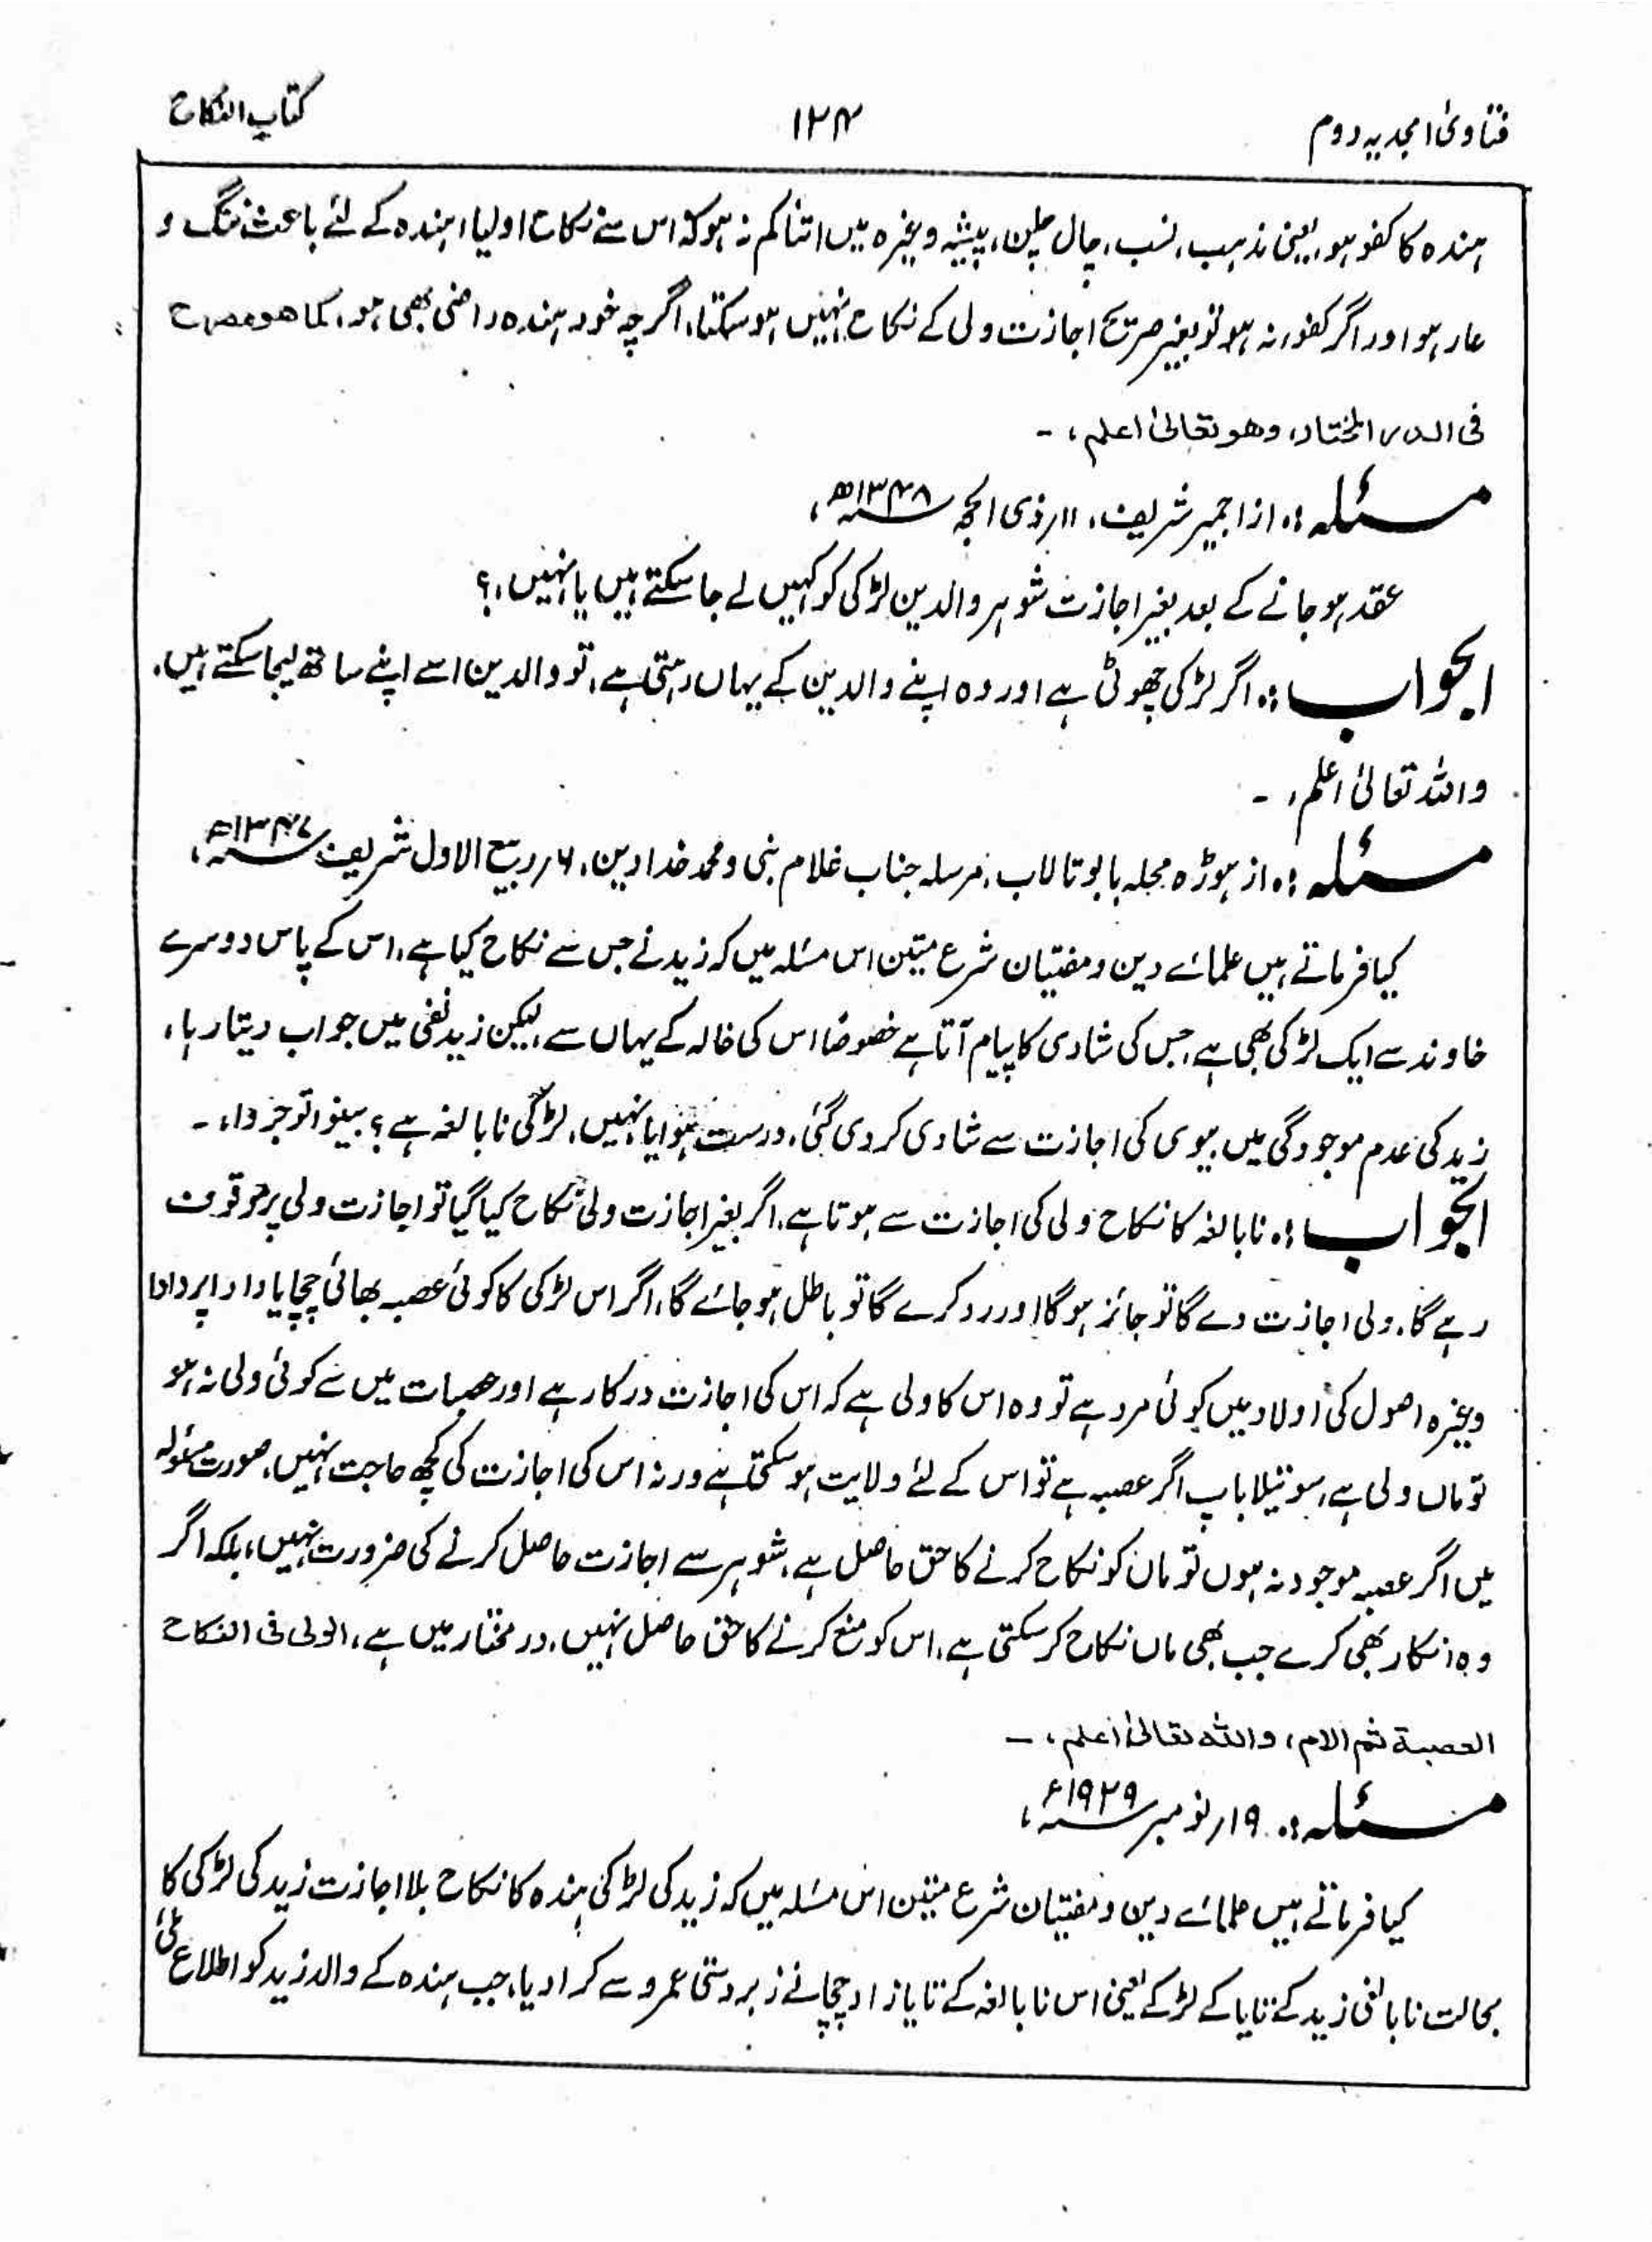 فتاویٰ امجدیہ دوم
۱۲۴
کتاب النکاح
ہندہ کا کفو ہو، یعنی مذہب، نسب، چال چلن، پیشہ وغیرہ میں اتنا کم نہ ہو کہ اس سے نکاح اولیاء ہندہ کے لئے باعث ننگ و
عار ہو اور اگر کفو نہ ہو تو بغیر صریح اجازت ولی کے نکاح نہیں ہو سکتا، اگرچہ خود ہندہ راضی بھی ہو، کما ھو مصرح
فی الدر المختار، وھو تعالیٰ اعلم، ۔
مسئلہ :۔ از اجمیر شریف، ۱۱؍ ذی الحجہ ۱۳۴۸ھ،
عقد ہو جانے کے بعد بغیر اجازت شوہر والدین لڑکی کو کہیں لے جا سکتے ہیں یا نہیں،؟
الجواب :۔ اگر لڑکی چھوٹی ہے اور وہ اپنے والدین کے یہاں رہتی ہے، تو والدین اسے اپنے ساتھ لیجا سکتے ہیں،
واللہ تعالیٰ اعلم، ۔
مسئلہ :۔ از ہوڑہ محلہ بابو تالاب، مرسلہ جناب غلام نبی و محمد خدادین، ۶؍ ربیع الاول شریف ۱۳۴۷ھ،
کیا فرماتے ہیں علمائے دین و مفتیان شرع متین اس مسئلہ میں کہ زید نے جس سے نکاح کیا ہے، اس کے پاس دوسرے
خاوند سے ایک لڑکی بھی ہے، جس کی شادی کا پیام آتا ہے خصوصًا اس کی خالہ کے یہاں سے، لیکن زید نفی میں جواب دیتا رہا،
زید کی عدم موجودگی میں بیوی کی اجازت سے شادی کر دی گئی، درست ہوا یا نہیں، لڑکی نابالغہ ہے؟ بینوا توجروا، ۔
الجواب :۔ نابالغہ کا نکاح ولی کی اجازت سے ہوتا ہے، اگر بغیر اجازت ولی نکاح کیا گیا تو اجازت ولی پر موقوف
رہے گا، ولی اجازت دے گا تو جائز ہو گا اور رد کرے گا تو باطل ہو جائے گا، اگر اس لڑکی کا کوئی عصبہ بھائی چچا یا دادا پردادا
وغیرہ اصول کی اولاد میں کوئی مرد ہے تو وہ اس کا ولی ہے کہ اس کی اجازت درکار ہے اور عصبات میں سے کوئی ولی نہ ہو
تو ماں ولی ہے، سوتیلا باپ اگر عصبہ ہے تو اس کے لئے ولایت ہو سکتی ہے ورنہ اس کی اجازت کی کچھ حاجت نہیں، صورت مسئولہ
میں اگر عصبہ موجود نہ ہوں تو ماں کو نکاح کرنے کا حق حاصل ہے، شوہر سے اجازت حاصل کرنے کی ضرورت نہیں، بلکہ اگر
وہ انکار بھی کرے جب بھی ماں نکاح کر سکتی ہے، اس کو منع کرنے کا حق حاصل نہیں، در مختار میں ہے، الولی فی النکاح
العصبة ثم الام، واللہ تعالیٰ اعلم، ۔
مسئلہ :۔ ۱۹؍ نومبر ۱۹۲۹ء،
کیا فرماتے ہیں علمائے دین و مفتیان شرع متین اس مسئلہ میں کہ زید کی لڑکی ہندہ کا نکاح بلا اجازت زید کی لڑکی کا
بحالت نابالغی زید کے تایا کے لڑکے یعنی اس نابالغہ کے تایا زاد چچا نے زبردستی عمرو سے کرا دیا، جب ہندہ کے والد زید کو اطلاع ملی